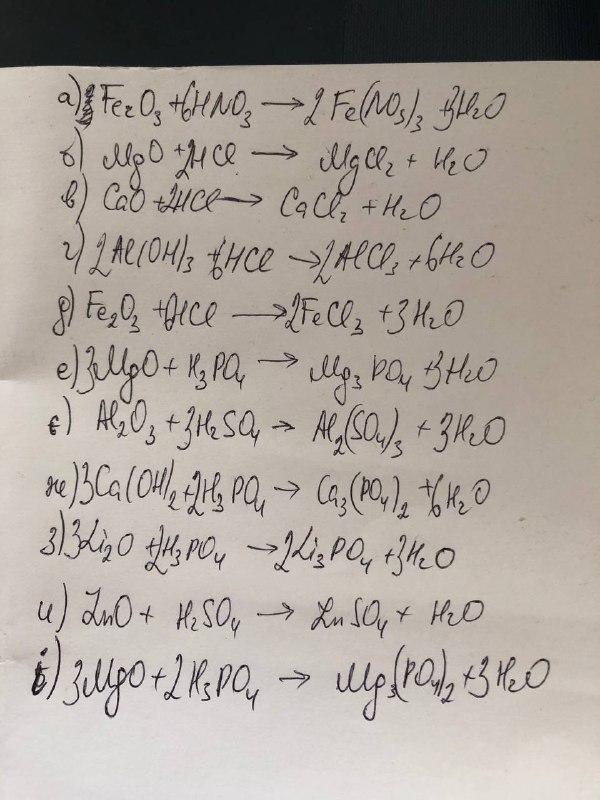 а) Fe₂O₃ + 6HNO₃ → 2Fe(NO₃)₃ + 3H₂O
б) MgO + 2HCl → MgCl₂ + H₂O
в) CaO + 2HCl → CaCl₂ + H₂O
г) 2Al(OH)₃ + 6HCl → 2AlCl₃ + 6H₂O
д) Fe₂O₃ + HCl → 2FeCl₃ + 3H₂O
е) 3MgO + H₃PO₄ → Mg₃PO₄ + 3H₂O
є) Al₂O₃ + 3H₂SO₄ → Al₂(SO₄)₃ + 3H₂O
ж) 3Ca(OH)₂ + 2H₃PO₄ → Ca₃(PO₄)₂ + 6H₂O
з) 3Li₂O + 2H₃PO₄ → 2Li₃PO₄ + 3H₂O
и) ZnO + H₂SO₄ → ZnSO₄ + H₂O
і) 3MgO + 2H₃PO₄ → Mg₃(PO₄)₂ + 3H₂O